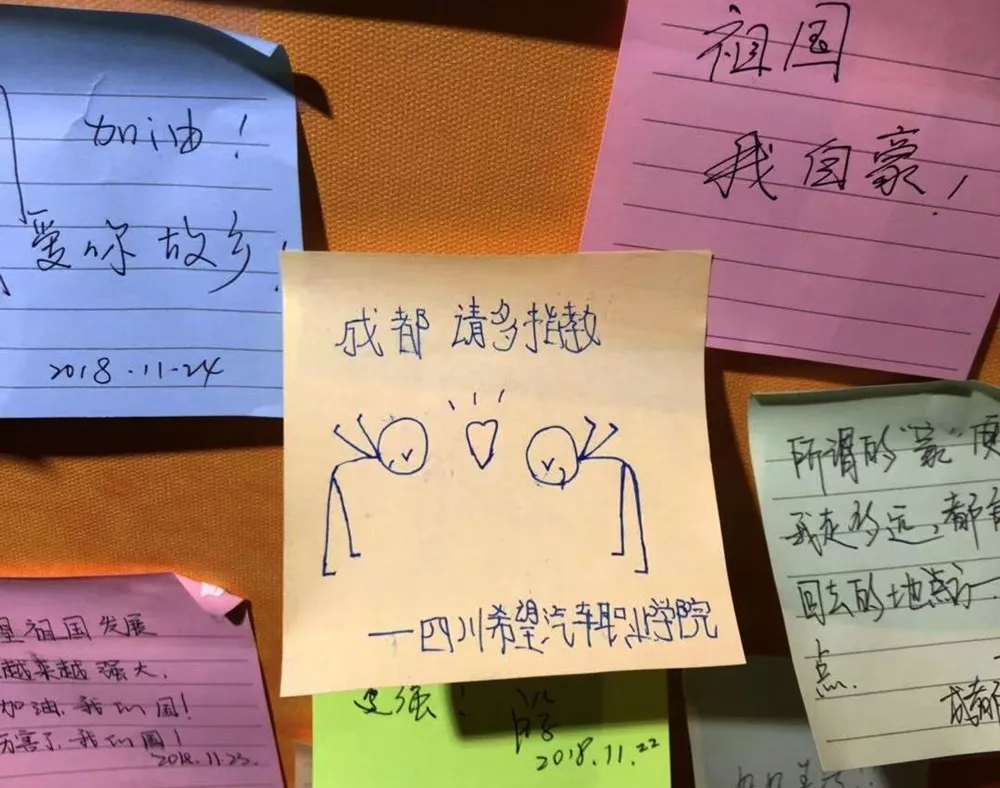 加油!
爱你故乡!
2018.11.24
祖国
我自豪!
成都 请多指教
—四川希望汽车职业学院
所谓的"豪"
我走多远,都
回去的地方
点.
成都
祖国发展
越来越强大,
加油.我们国!
厉害了,我们国!
2018.11.23.
更强!
2018.11.22